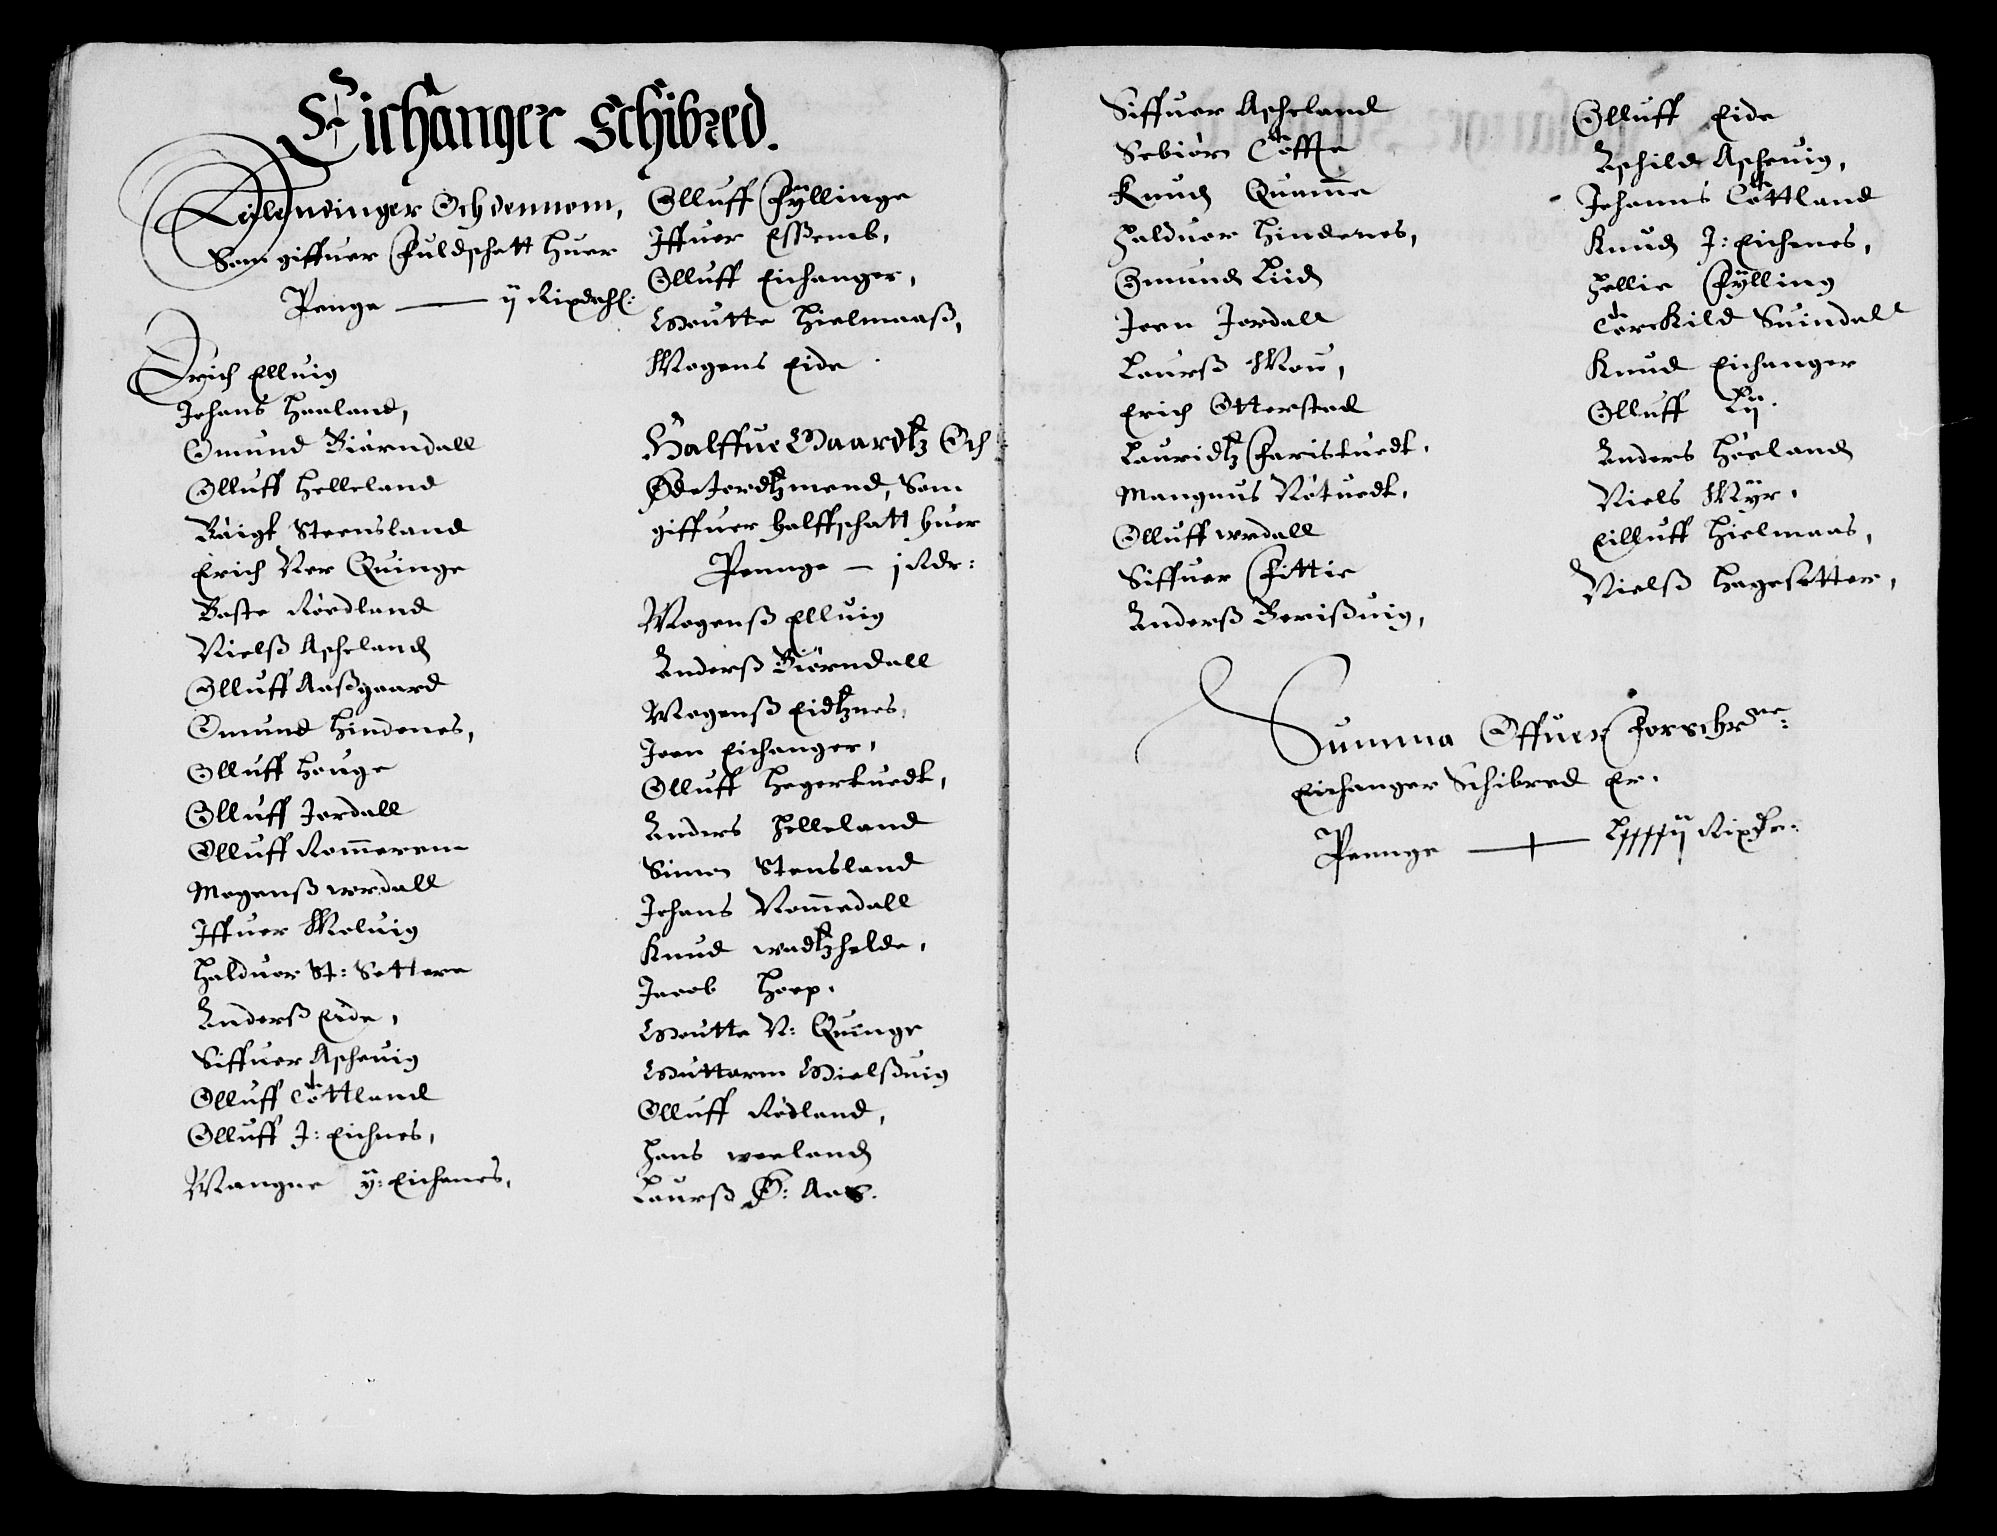 Eichanger Schibred.
Leilendinger Och dennom,
Som giffuer Fuldschatt huer
Penge — ij Rixdahl:
Erich Elluig
Johans Haaland,
Omund Biørndall
Olluff Helleland
Steensland
Erich Ner Quinge
Baste Rørdland
Nielß Ascheland
Olluff Aaßgaard
Omund Hindenes,
Olluff Houge
Olluff Jordall
Olluff Rommerem
Mogenß wrdall
Iffuer Moluig
Halduor St: Settere
Anderß Eide,
Siffuer Ascheuig
Olluff Tøttland
Olluff J: Eichnes,
Mangne ÿ: Eichenes,
Olluff Fÿllinge
Iffuer Eßemb,
Olluff Eichanger,
Goutte Hielmaaß,
Mogens Eide
Halffue Gaardtz Och
Øde Jordtzmend, Som
giffuer halffschatt huer
Pennge — j Rdr:
Mogenß Elluig
Anderß Biørndall
Mogenß Eidtznes,
Joen Eichanger,
Olluff Hegertuedt,
Anders Helleland
Simon Stensland
Johans Rommedall
Knud wadtzhelde,
Jacob Hoep.
Goutte N: Quinge
Guttorm Gielßuig
Olluff Rødland,
Hans weeland
Laurß Ø: Aas.
Siffuer Ascheland
Sebiørn Toffte
Knud Quamme
Halduor Hindenes,
Omund Liid
Joen Jordall
Laurß Mou,
Erich Otterstad
Lauridtz Faristuedt.
Mangnus Røtuedt,
Olluff wrdall
Siffuer Fittie
Anderß Berißuig,
Olluff Eide
Aschild Ascheuig,
Johanns Tøttland
Knud J: Eichenes,
Hellie Fÿlling
Torckild Suindall
Knud Eichanger
Olluff Lij.
Anders Høeland
Niels Mÿr.
Eilluff Hielmaas,
Nielß Hagesetter,
Summa Offuer Forschrne:
Eichanger Schibred Er.
Pennge — Lxxxxij Rixdr: